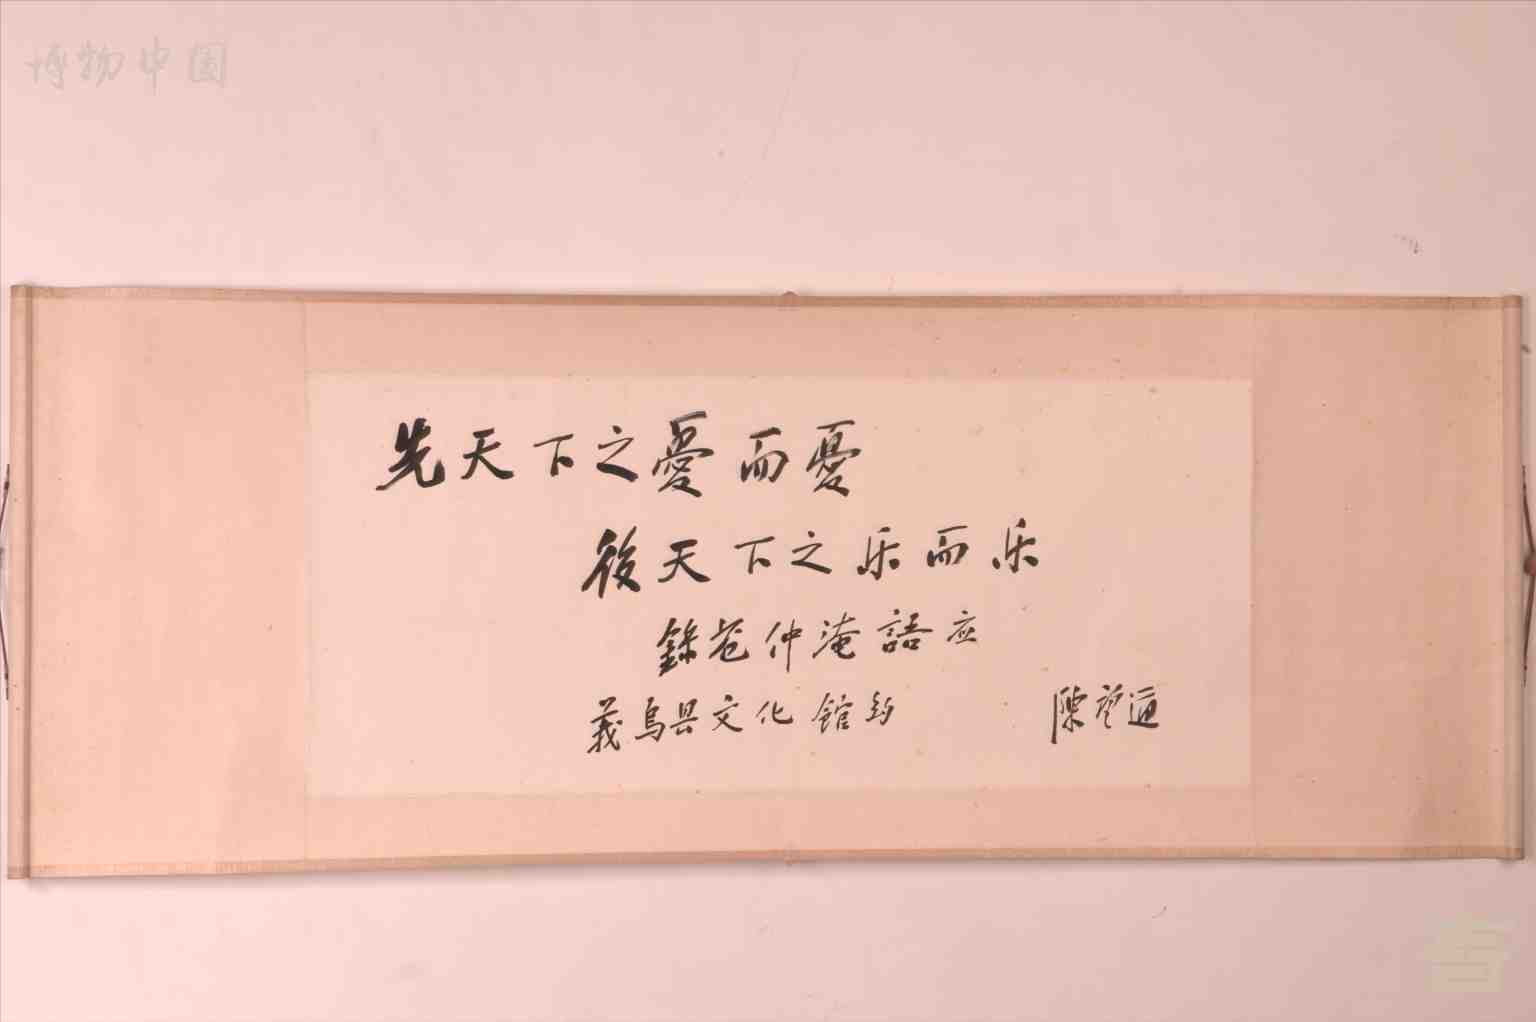 博物中国
先天下之憂而憂
後天下之乐而乐
錄范仲淹語应
義烏县文化館約
陳望道